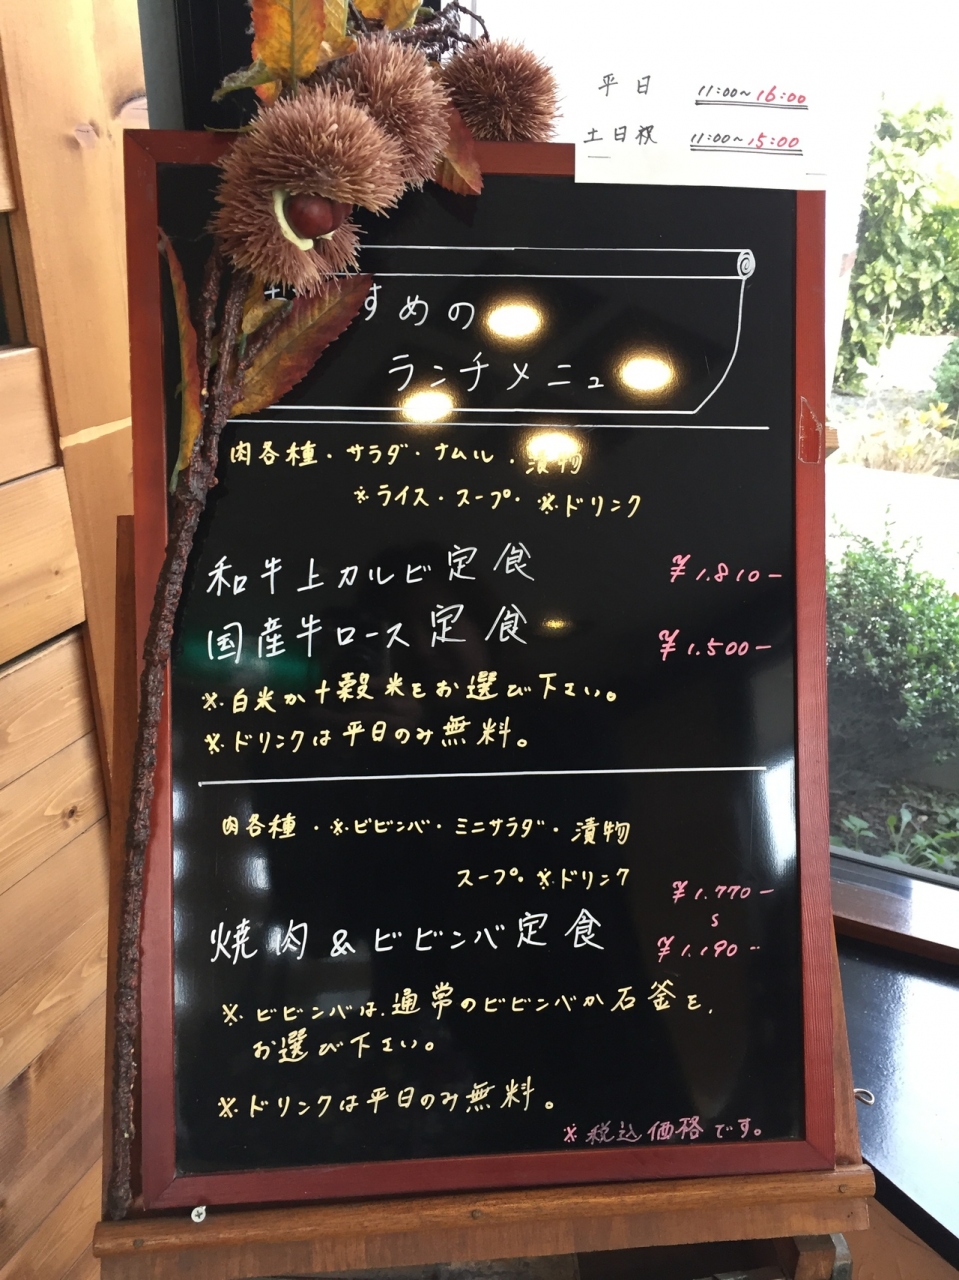 平日 11:00~16:00
土日祝 11:00~15:00
すめの
ランチメニュ
肉各種・サラダ・ナムル・漬物
※ライス・スープ・※ドリンク
和牛上カルビ定食 ¥1.810-
国産牛ロース定食 ¥1.500-
※白米か十穀米をお選び下さい。
※ドリンクは平日のみ無料。
肉各種・※ビビンバ・ミニサラダ・漬物
スープ。※ドリンク
¥1.770-
S
焼肉&ビビンバ定食 ¥1.190-
※ビビンバは、通常のビビンバか石釜を、
お選び下さい。
※ドリンクは平日のみ無料。
※税込価格です。